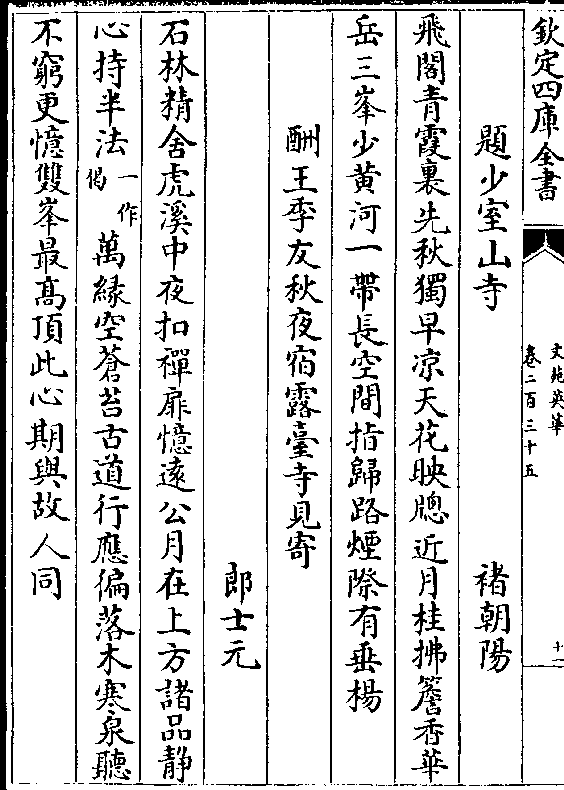 欽定四庫全書
文苑英華
卷二百三十五
十一
題少室山寺 褚朝陽
飛閣青霞裏先秋獨早凉天花映牕近月桂拂簷香華
岳三峯少黄河一帶長空間指歸路煙際有垂楊
酬王季友秋夜宿露臺寺見寄
郎士元
石林精舍虎溪中夜扣禪扉憶遠公月在上方諸品静
心持半法一作偈萬縁空蒼苔古道行應徧落木寒泉聽
不窮更憶雙峯最髙頂此心期與故人同